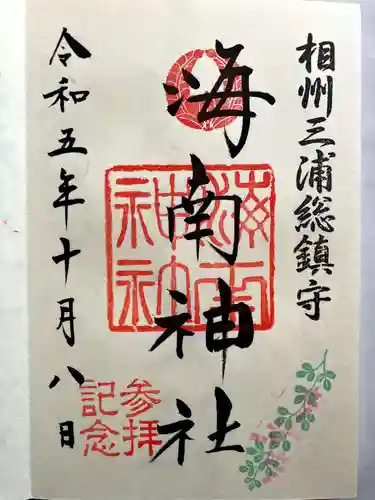 相州三浦総鎮守
海南神社
海南神社
参拝記念
令和五年十月八日